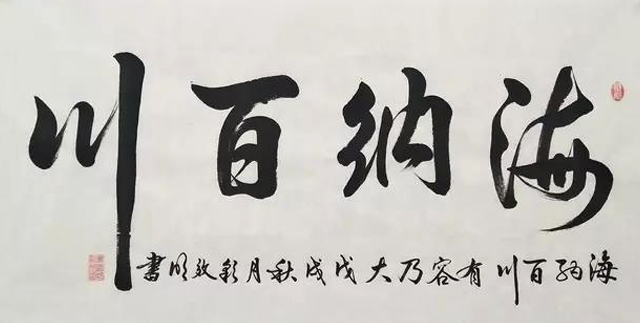 海纳百川
海纳百川有容乃大戊戌秋月彩放明書